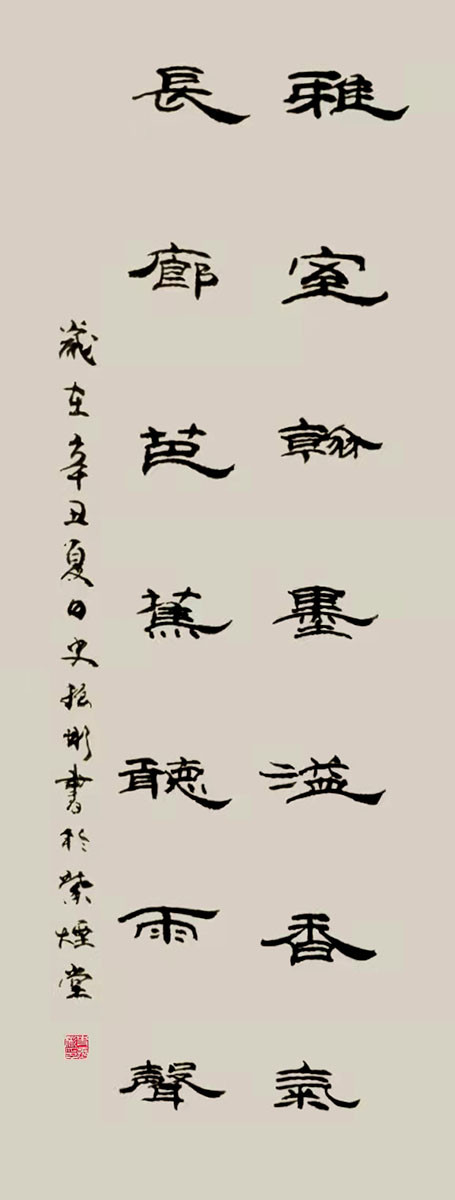 雅室翰墨溢香氣
長廊芭蕉聽雨聲
歲在辛丑夏日史振彬書於紫煙堂